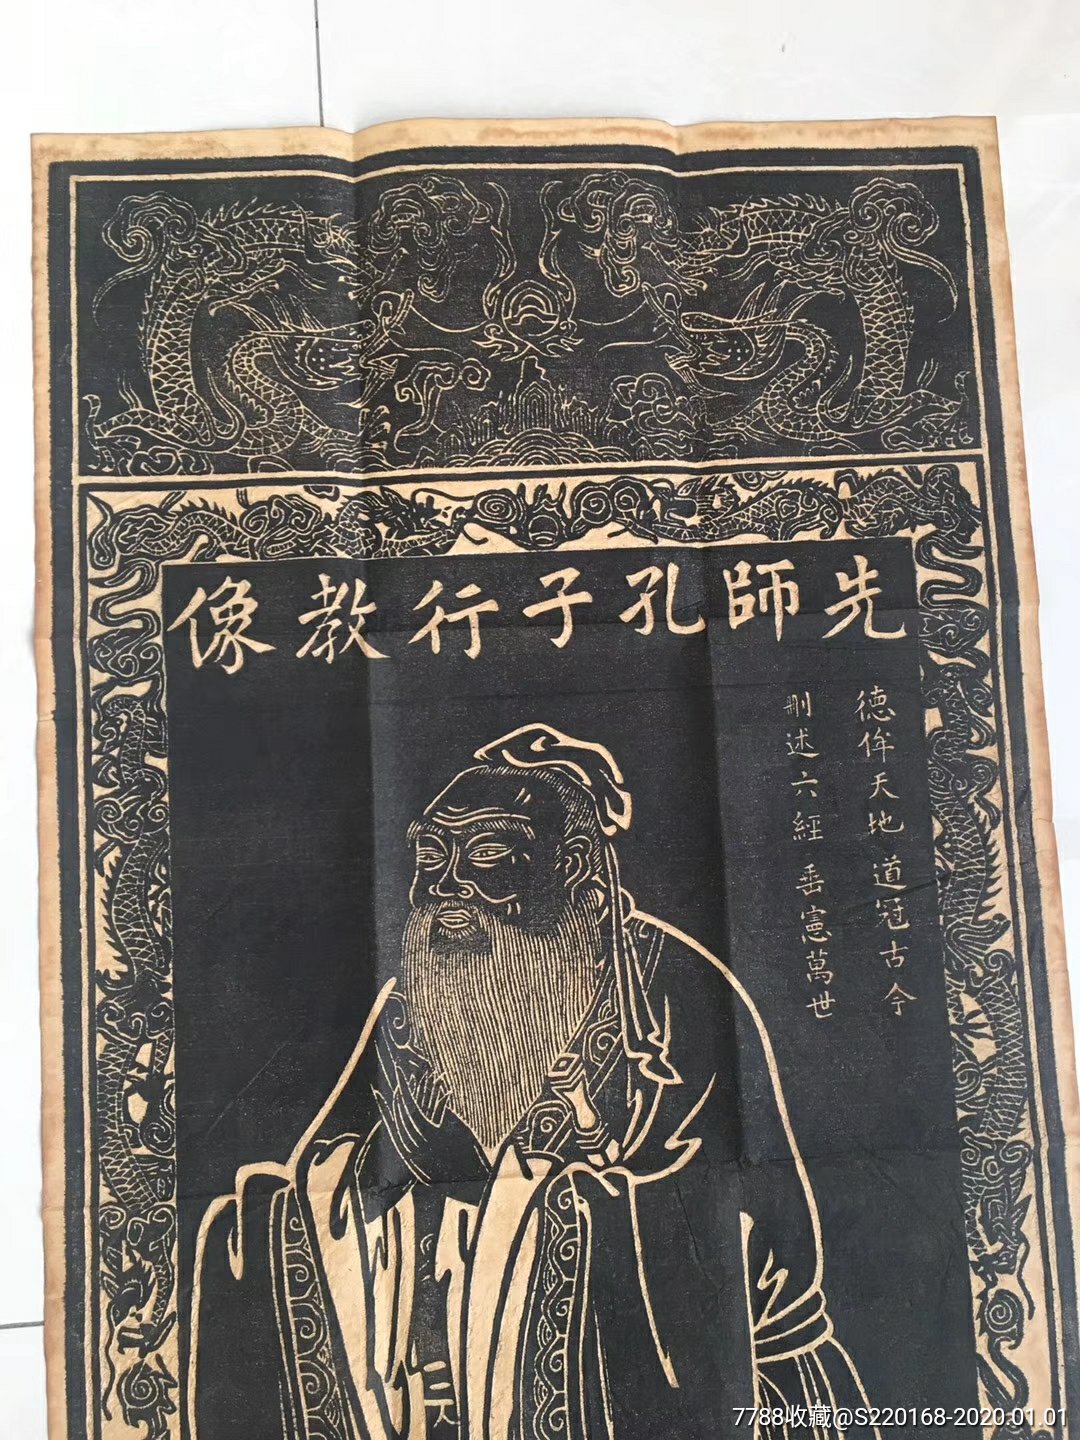 先師孔子行教像
德侔天地道冠古今
刪述六經垂憲萬世
7788收藏@S220168-2020.01.01